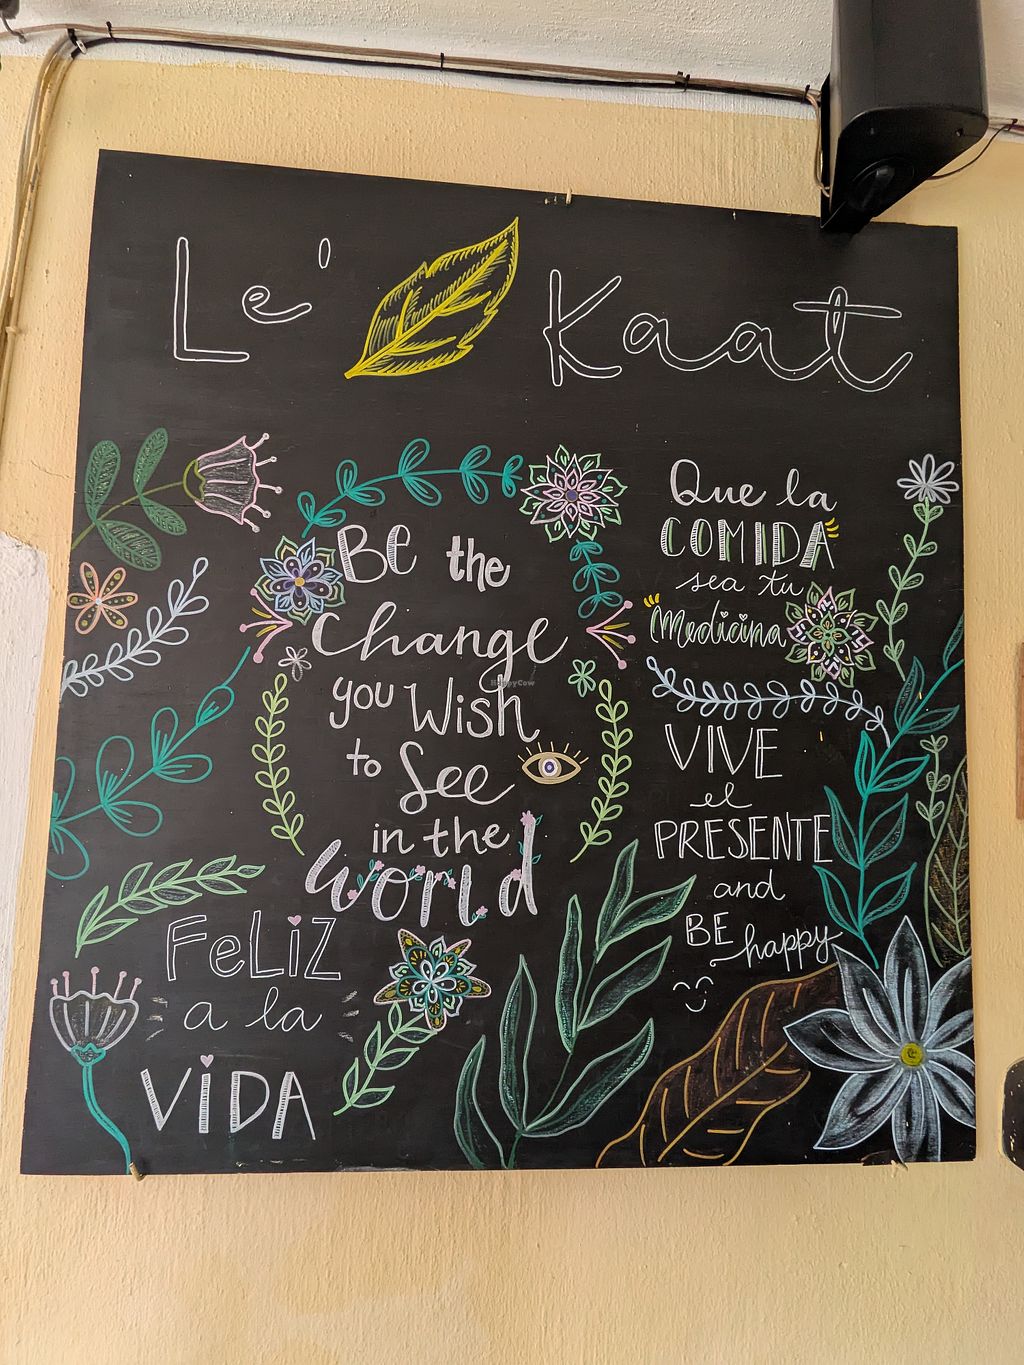 Le' Kaat
BE the
change
you Wish
to See
in the
World
Que la
COMIDA
sea tu
Medicina
VIVE
el
PRESENTE
and
BE happy
FeLiZ
a la
ViDA
HappyCow